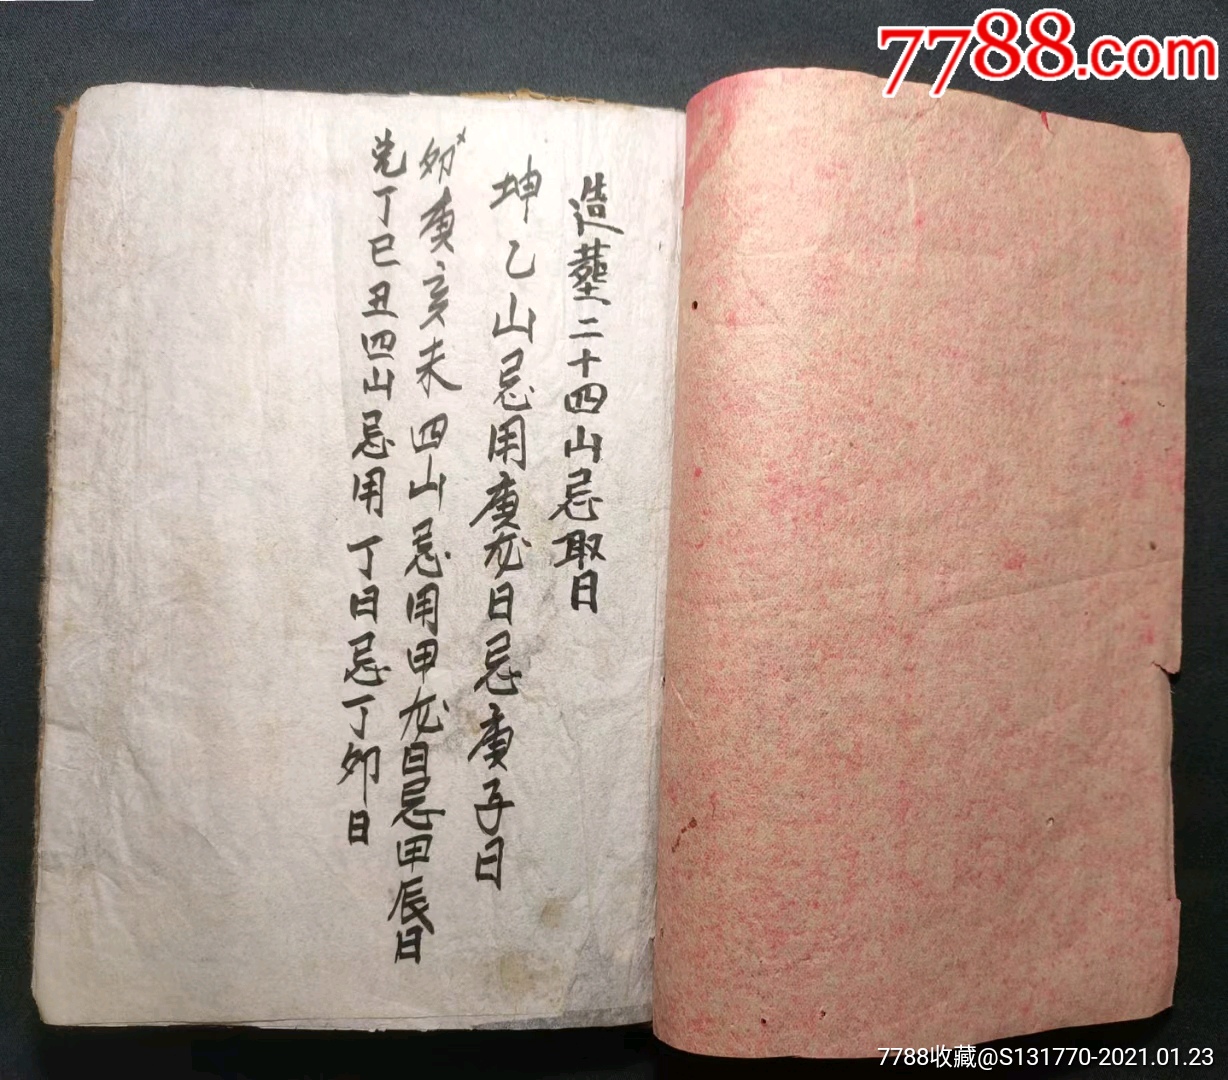 7788.com
造塟二十四山忌取日
坤乙山忌用庚龙日忌庚子日
卯庚亥未四山忌用甲龙日忌甲辰日
兑丁巳丑四山忌用丁日忌丁卯日
7788收藏@S131770-2021.01.23